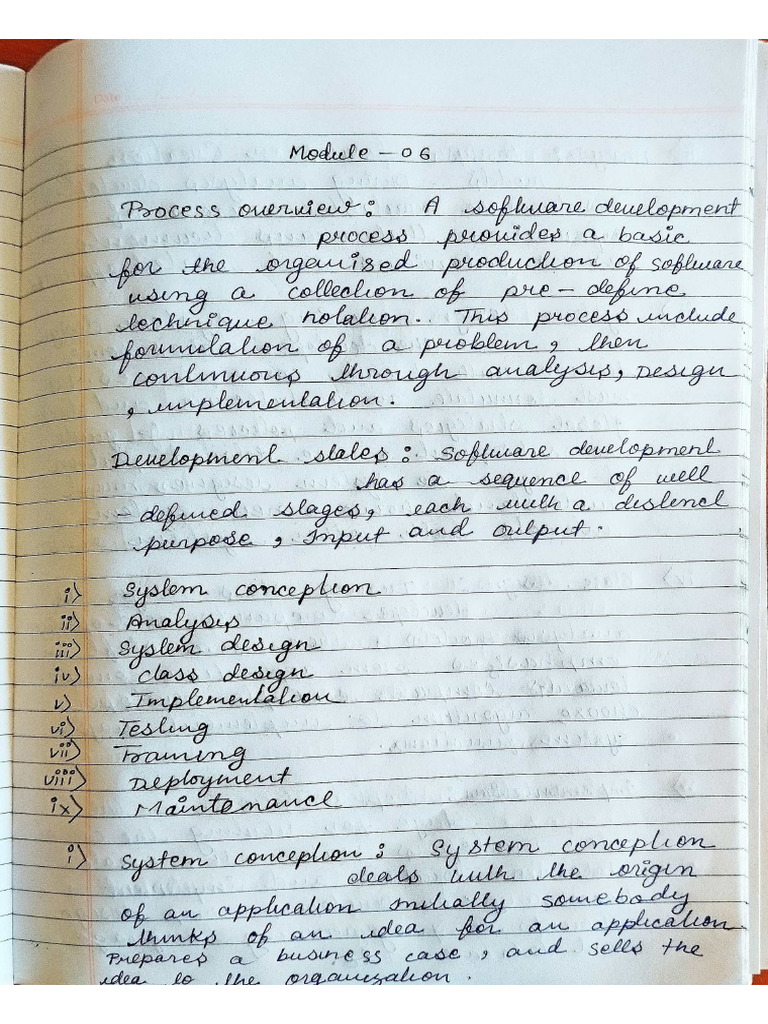 Date
Module - 06
Process overview : A software development
process provides a basic
for the organised production of software
using a collection of pre-define
technique notation. This process include
formulation of a problem, then
continuous through analysis, Design
, implementation.
Development states : Software development
has a sequence of well
-defined stages, each with a distinct
purpose, Input and output.
i) System conception
ii) Analysis
iii) System design
iv) class design
v) Implementation
vi) Testing
vii) Training
viii) Deployment
ix) Maintenance
i) System conception : System conception
deals with the origin
of an application initially somebody
thinks of an idea for an application
Prepares a business case, and sells the
idea to the organization.